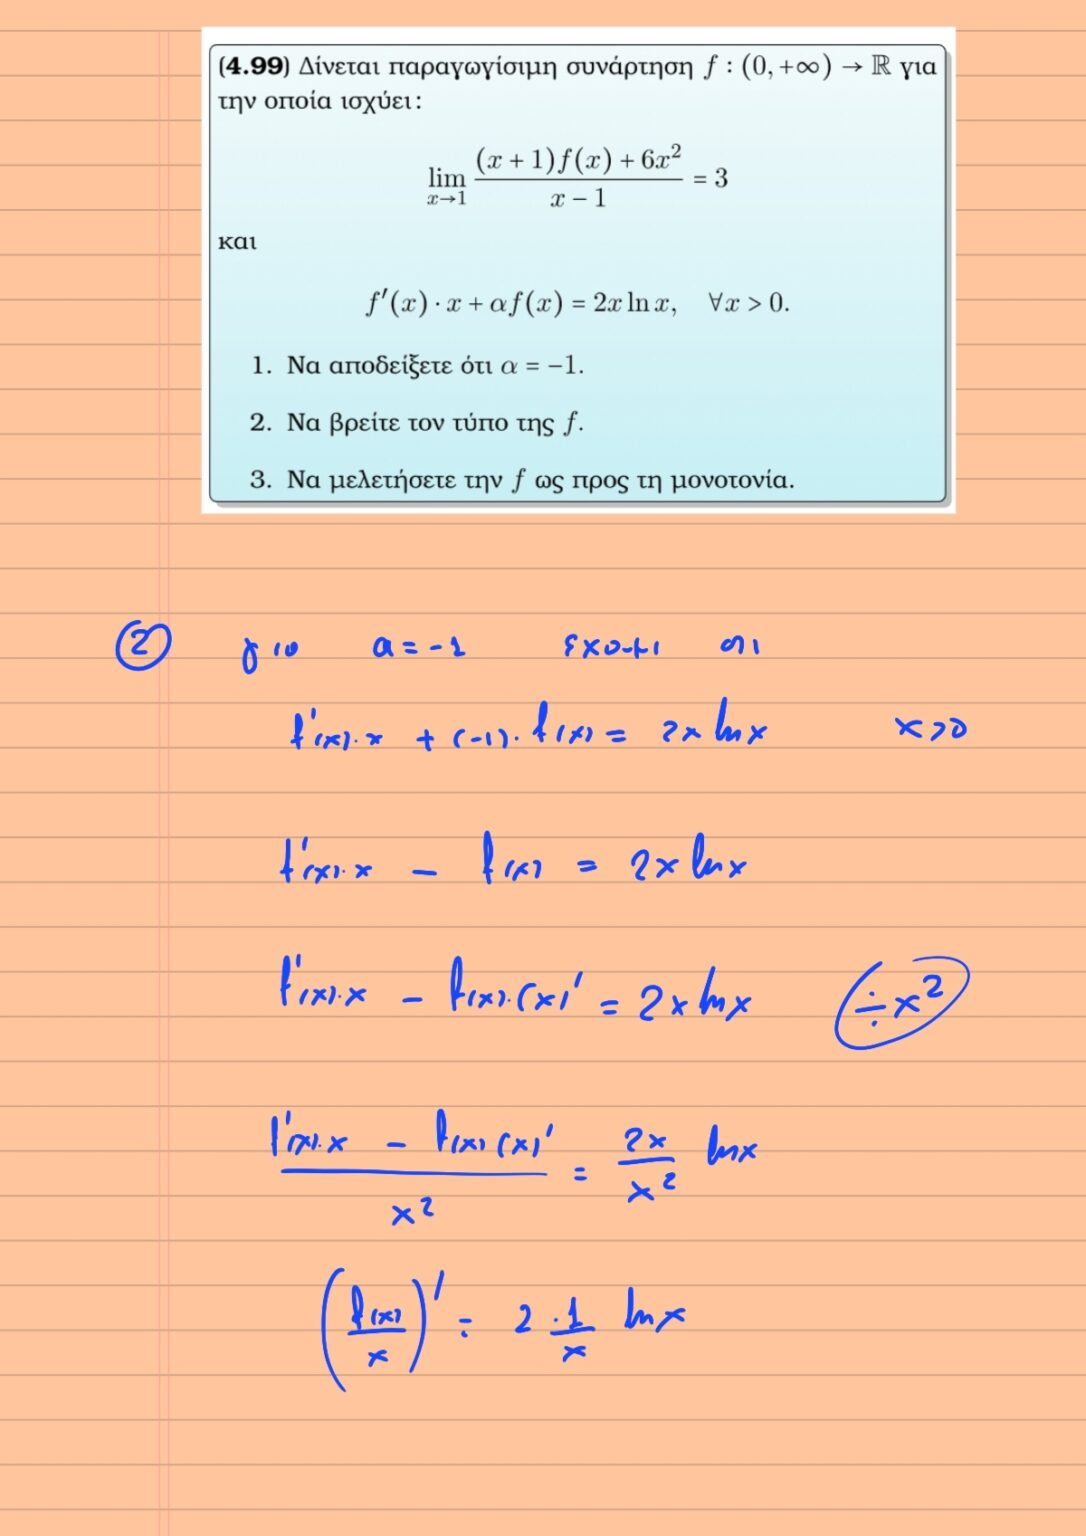 (4.99) Δίνεται παραγωγίσιμη συνάρτηση f : (0, +∞) → ℝ για
την οποία ισχύει:
lim_{x→1} ((x + 1)f(x) + 6x²)/(x − 1) = 3
και
f′(x) · x + αf(x) = 2x ln x, ∀x > 0.
1. Να αποδείξετε ότι α = −1.
2. Να βρείτε τον τύπο της f.
3. Να μελετήσετε την f ως προς τη μονοτονία.
② για a = -1 έχουμε οτι
f'(x)·x + (-1)·f(x) = 2x lnx x>0
f'(x)·x - f(x) = 2x lnx
f'(x)·x - f(x)·(x)' = 2x lnx ÷x²
(f'(x)·x - f(x)(x)')/x² = 2x/x² lnx
(f(x)/x)' = 2·1/x lnx